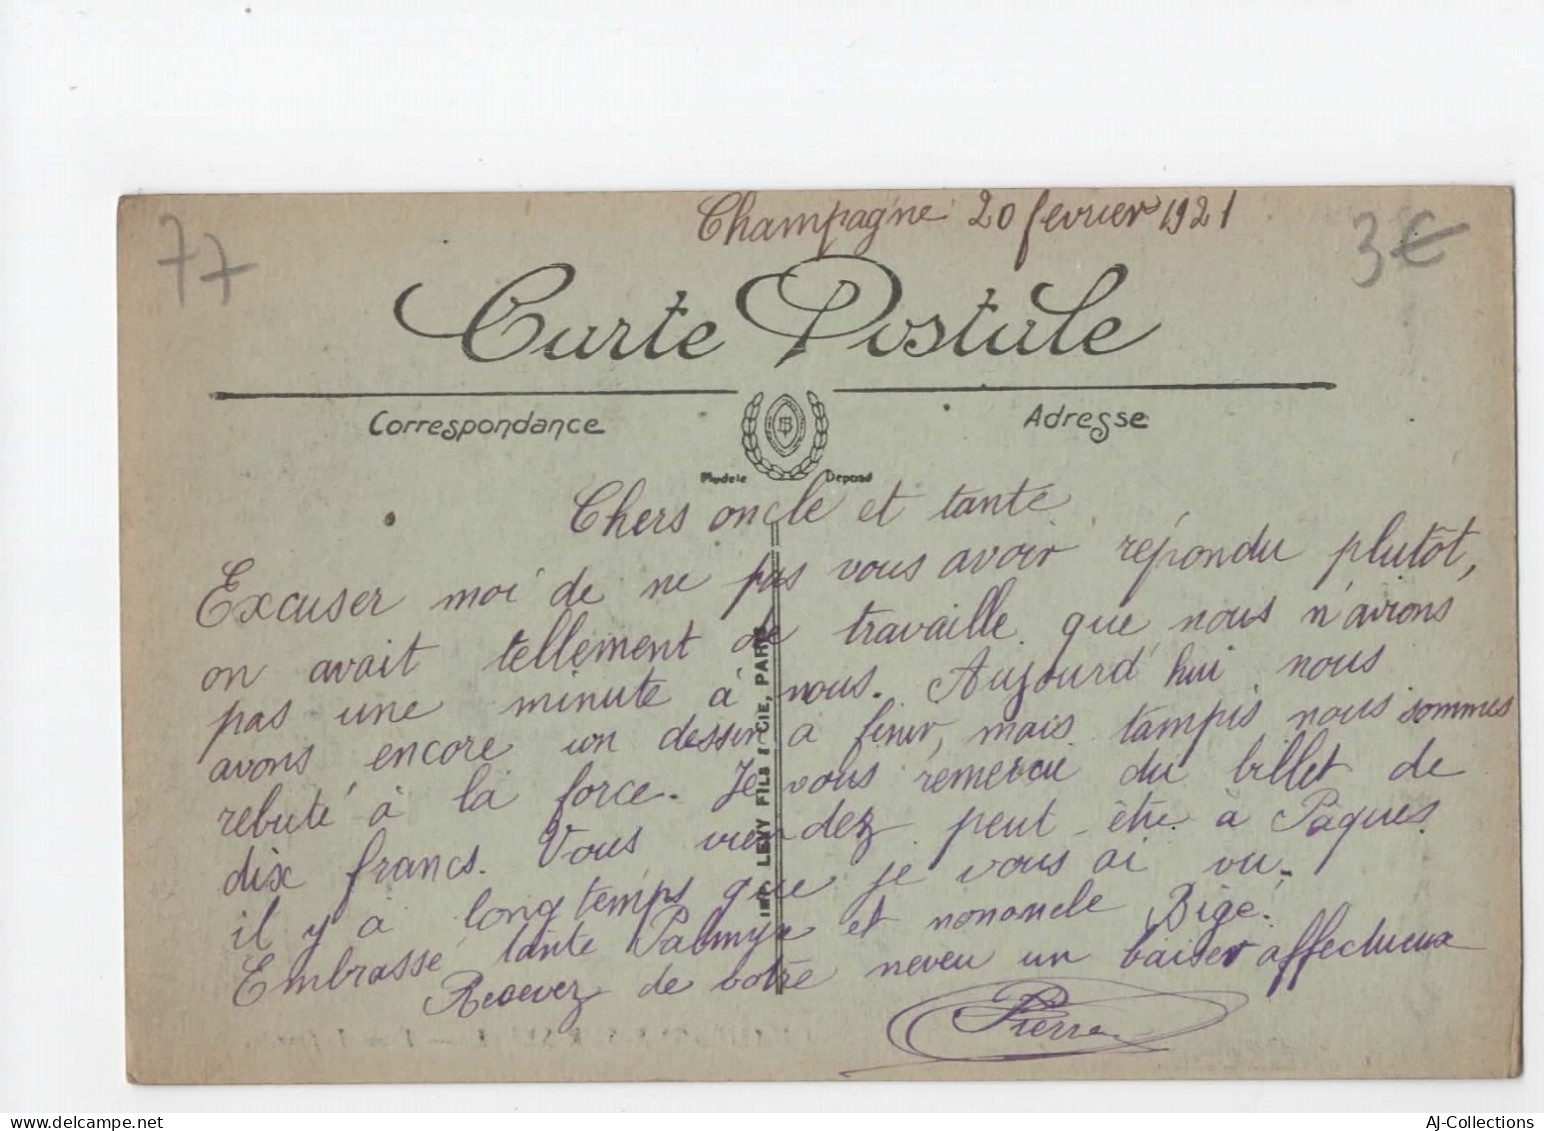 Champagne 20 fevrier 1921
77
3€
Carte Postale
Correspondance
Adresse
Modele Déposé
Chers oncle et tante
Excuser moi de ne pas vous avoir répondu plutôt,
on avait tellement de travaille que nous n'avions
pas une minute à nous. Aujourd'hui nous
avons encore un dessin a finir, mais tampis nous sommes
rebuté à la force. Je vous remercie du billet de
dix francs. Vous viendez peut être à Pâques
il y à longtemps que je vous ai vu.
Embrassé tante Palmyr et nononcle Bigé.
Recevez de votre neveu un baiser affectueux
Pierre
IMP. LEVY FILS & CIE, PARIS
AJ-Collections